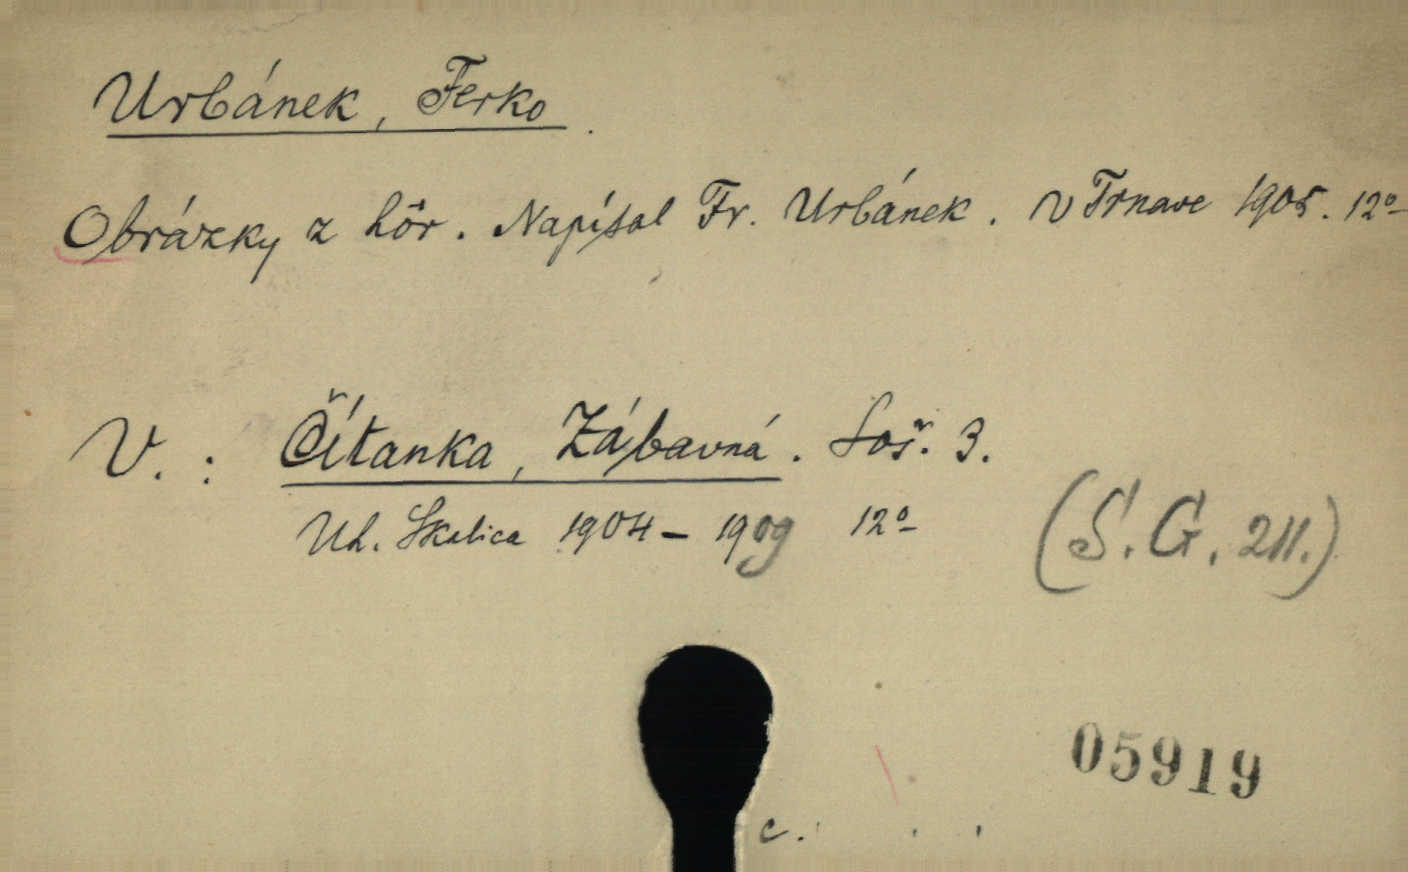 Urbánek, Ferko.
Obrázky z hôr. Napísal Fr. Urbánek. V Trnave 1905. 12°
V.: Čítanka, Zábavná. Soš. 3.
Uh. Skalica 1904 – 1909 12°
(S. G. 211.)
05919
c.